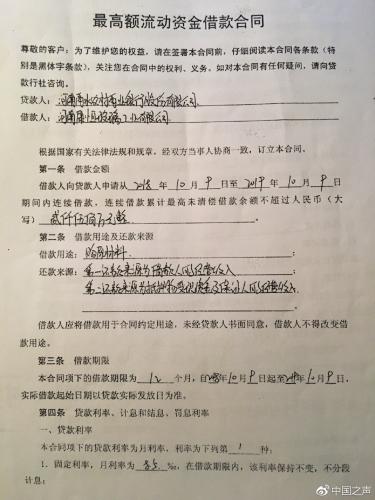 最高额流动资金借款合同
尊敬的客户：为了维护您的权益，请在签署本合同前，仔细阅读本合同各条款（特
别是黑体字条款），关注您在合同中的权利、义务。如对本合同有任何疑问，请向贷
款行社咨询。
贷款人：
借款人：
根据国家有关法律法规和规章，经双方当事人协商一致，订立本合同。
第一条 借款金额
借款人向贷款申请从2018年10月9日至2019年10月9日
期间内连续借款，连续借款累计最高未清偿借款余额不超过人民币（大
写）贰仟伍佰万元整
第二条 借款用途及还款来源
借款用途：购原材料
还款来源：第一还款来源为借款人的经营收入
第二还款来源为抵押物变现价值及保证人的经营收入
借款人应将借款用于合同约定用途，未经贷款人书面同意，借款人不得改变借
款用途。
第三条 借款期限
本合同项下的借款期限为12个月，自年10月9日起至年10月9日，
实际借款起始日期以贷款实际发放日为准。
第四条 贷款利率、计息和结息、罚息利率
一、贷款利率
本合同项下的贷款利率为月利率，利率为下列第1种：
1．固定利率，月利率为‰，在借款期限内，该利率保持不变，不分段
计息；
@中国之声